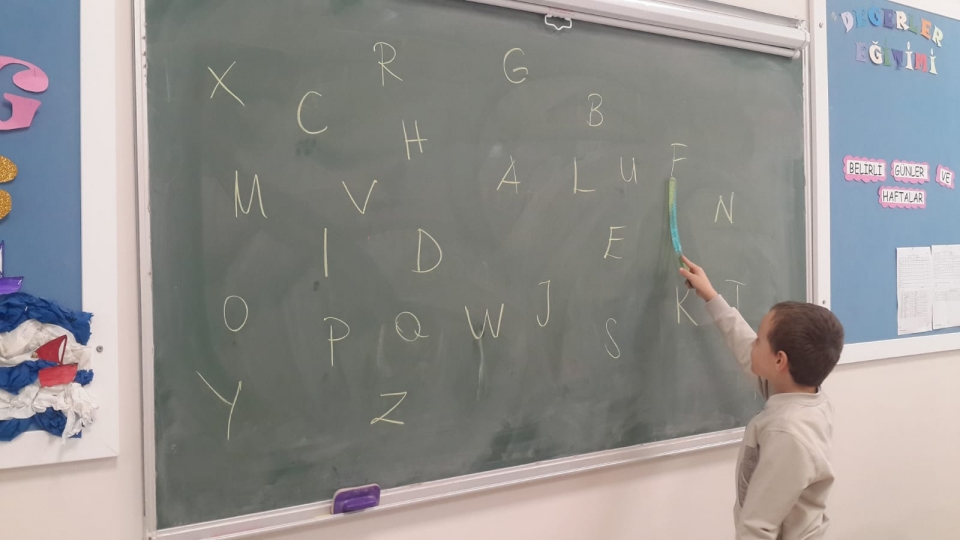 X R G
C H B
M V A L U F
I D E N
O P Q W J S K T
Y Z
DEĞERLER
EĞİTİMİ
BELİRLİ GÜNLER VE
HAFTALAR